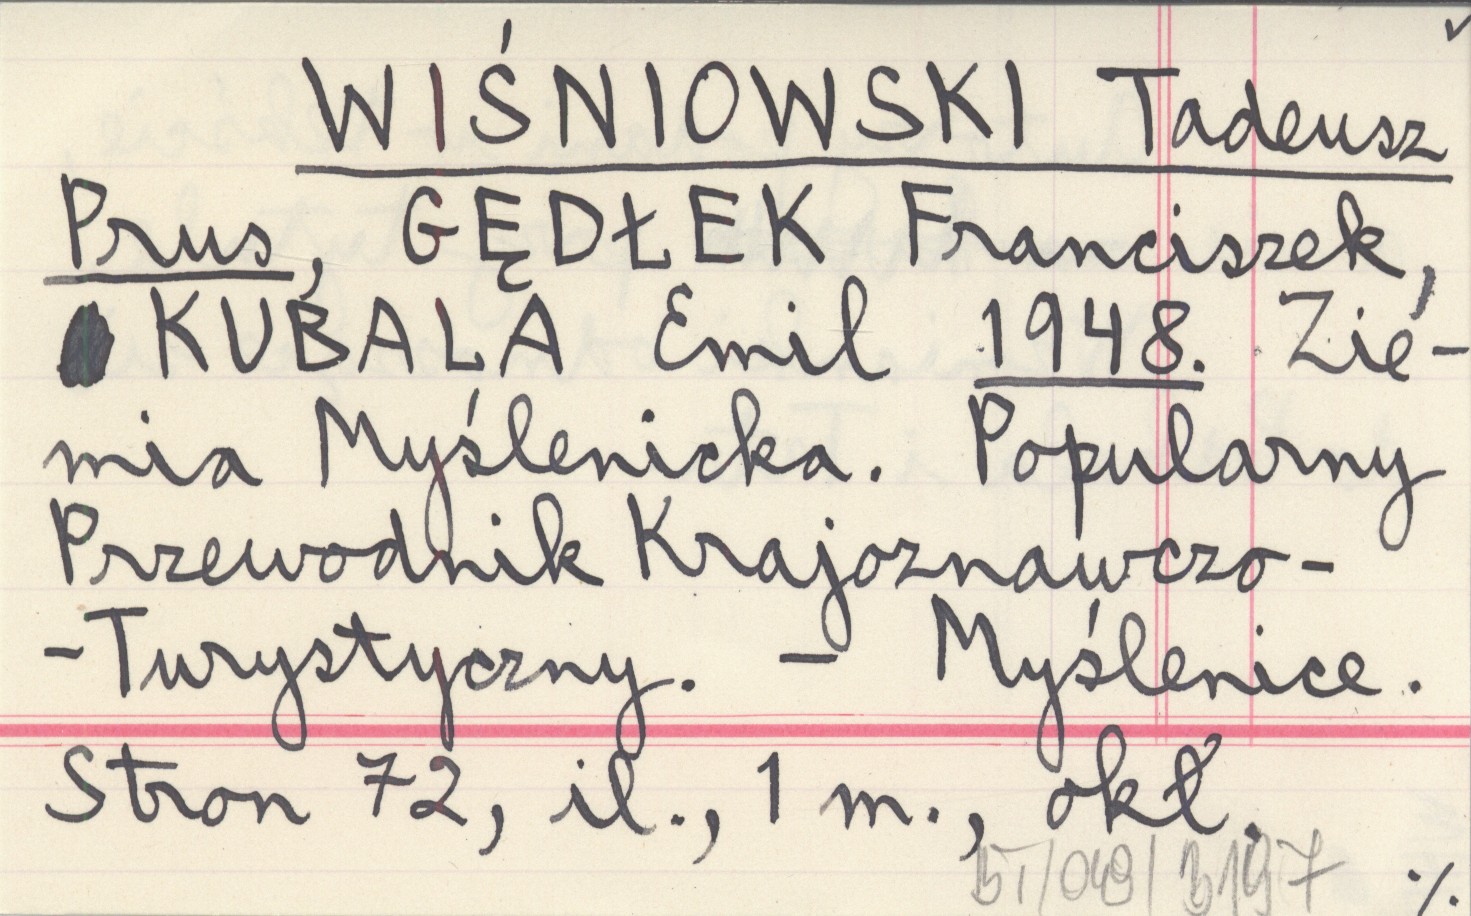 WIŚNIOWSKI Tadeusz
Prus, GĘDŁEK Franciszek,
KUBALA Emil 1948. Zie-
mia Myślenicka. Popularny
Przewodnik Krajoznawczo-
-Turystyczny. – Myślenice.
Stron 72, il., 1 m., okł.
./.